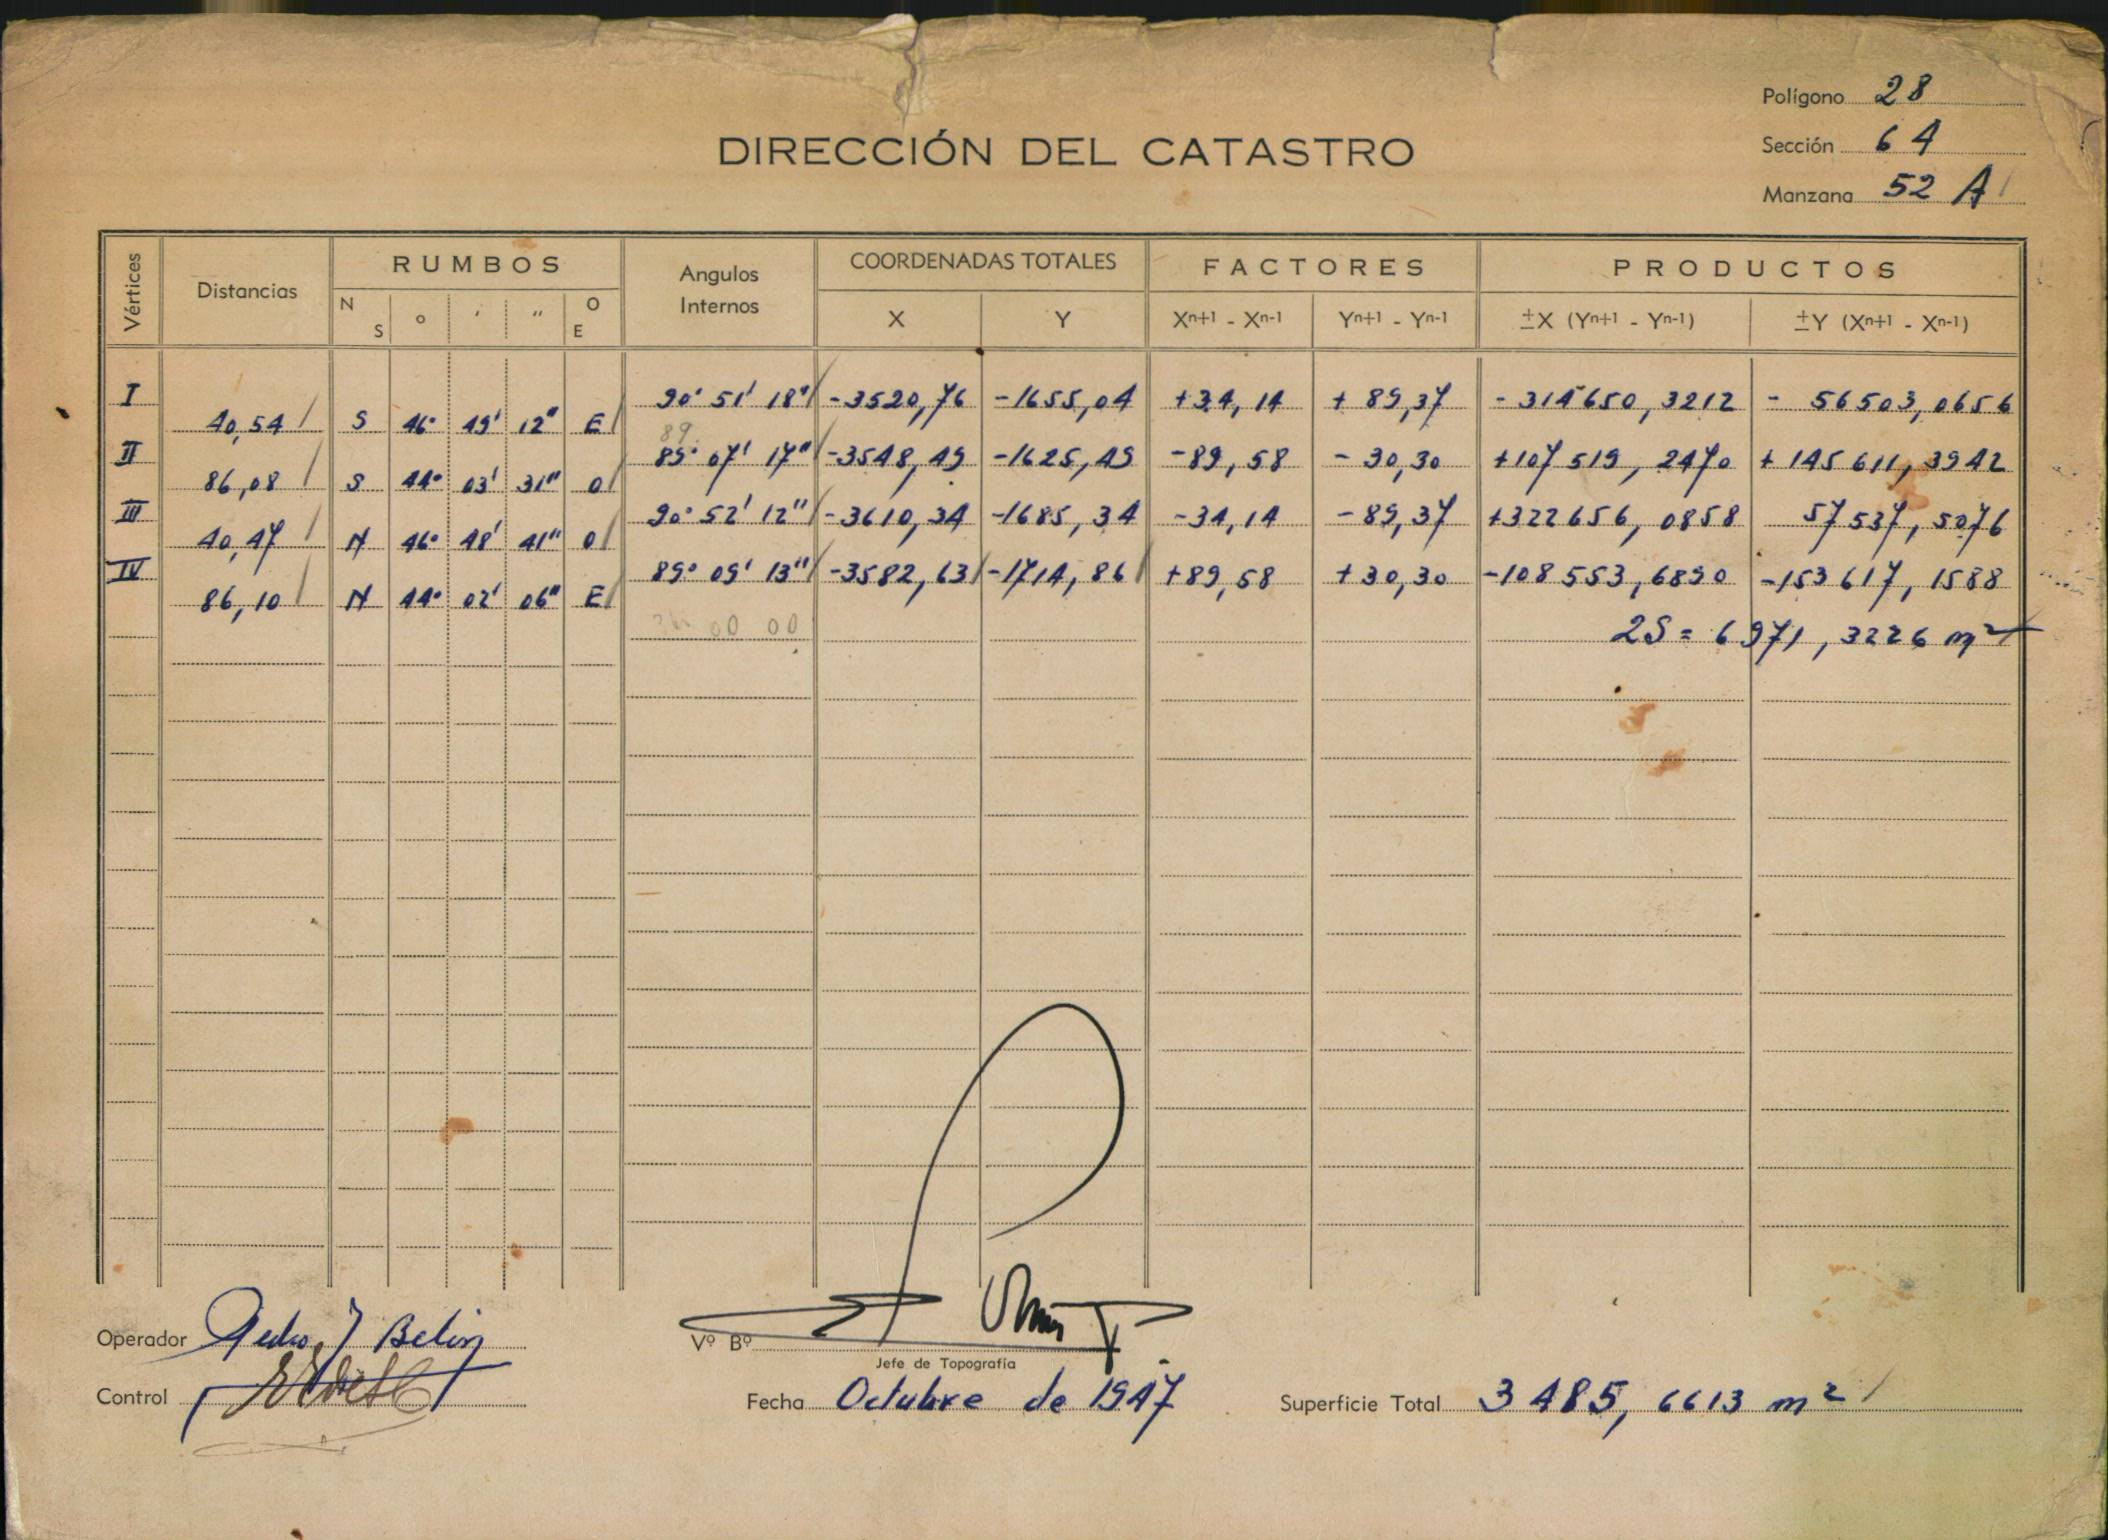 Polígono 28
DIRECCIÓN DEL CATASTRO
Sección 64
Manzana 52 A
Vértices Distancias RUMBOS Angulos Internos COORDENADAS TOTALES FACTORES PRODUCTOS
N S ° ' " O E X Y Xn+1 - Xn-1 Yn+1 - Yn-1 ±X (Yn+1 - Yn-1) ±Y (Xn+1 - Xn-1)
I 90° 51' 18" -3520,76 -1655,04 +34,14 + 89,37 - 314650, 3212 - 56503,0656
40,54 S 46° 49' 12" E
89
II 89° 07' 17" -3548,49 -1625,49 -89,58 - 30,30 +107519, 2470 + 145611, 3942
86,08 S 44° 03' 31" O
III 90° 52' 12" -3610,34 -1685,34 -34,14 -89,37 +322656, 0858 57537, 5076
40,47 N 46° 48' 41" O
IV 89° 09' 13" -3582,63 -1714,86 +89,58 +30,30 -108553,6890 -153617, 1588
86,10 N 44° 02' 06" E
00 00
2S = 6971, 3226 m²
Operador Pedro J Belin
Vº Bº
Jefe de Topografía
Control
Fecha Octubre de 1947
Superficie Total 3485, 6613 m²